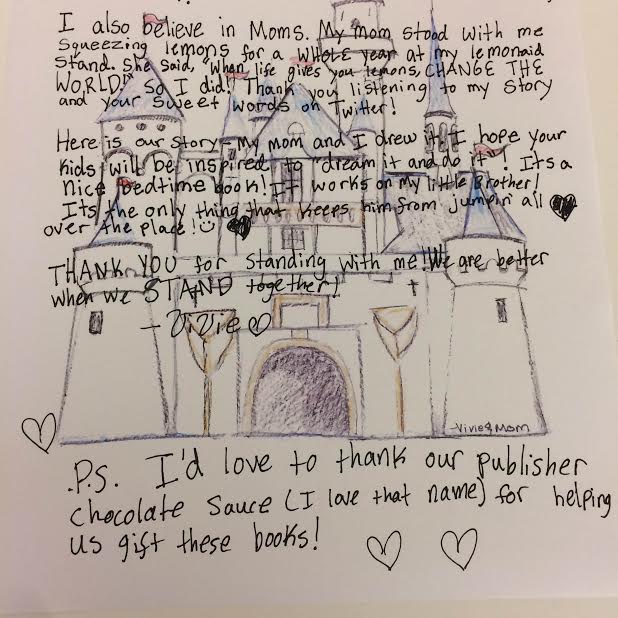 I also believe in Moms. My mom stood with me
squeezing lemons for a WHOLE year at my lemonaid
stand. She said, "When life gives you lemons, CHANGE THE
WORLD!" So I did! Thank you listening to my story
and your sweet words on Twitter!
Here is our story - my mom and I drew it! I hope your
kids will be inspired to "dream it and do it"! Its a
nice bedtime book! It works on my little Brother!
Its the only thing that keeps him from jumpin' all
over the place!
THANK YOU for standing with me! We are better
when we STAND together!
- Vivie
-Vivie & Mom
P.S. I'd love to thank our publisher
Chocolate Sauce (I love that name) for helping
us gift these books!